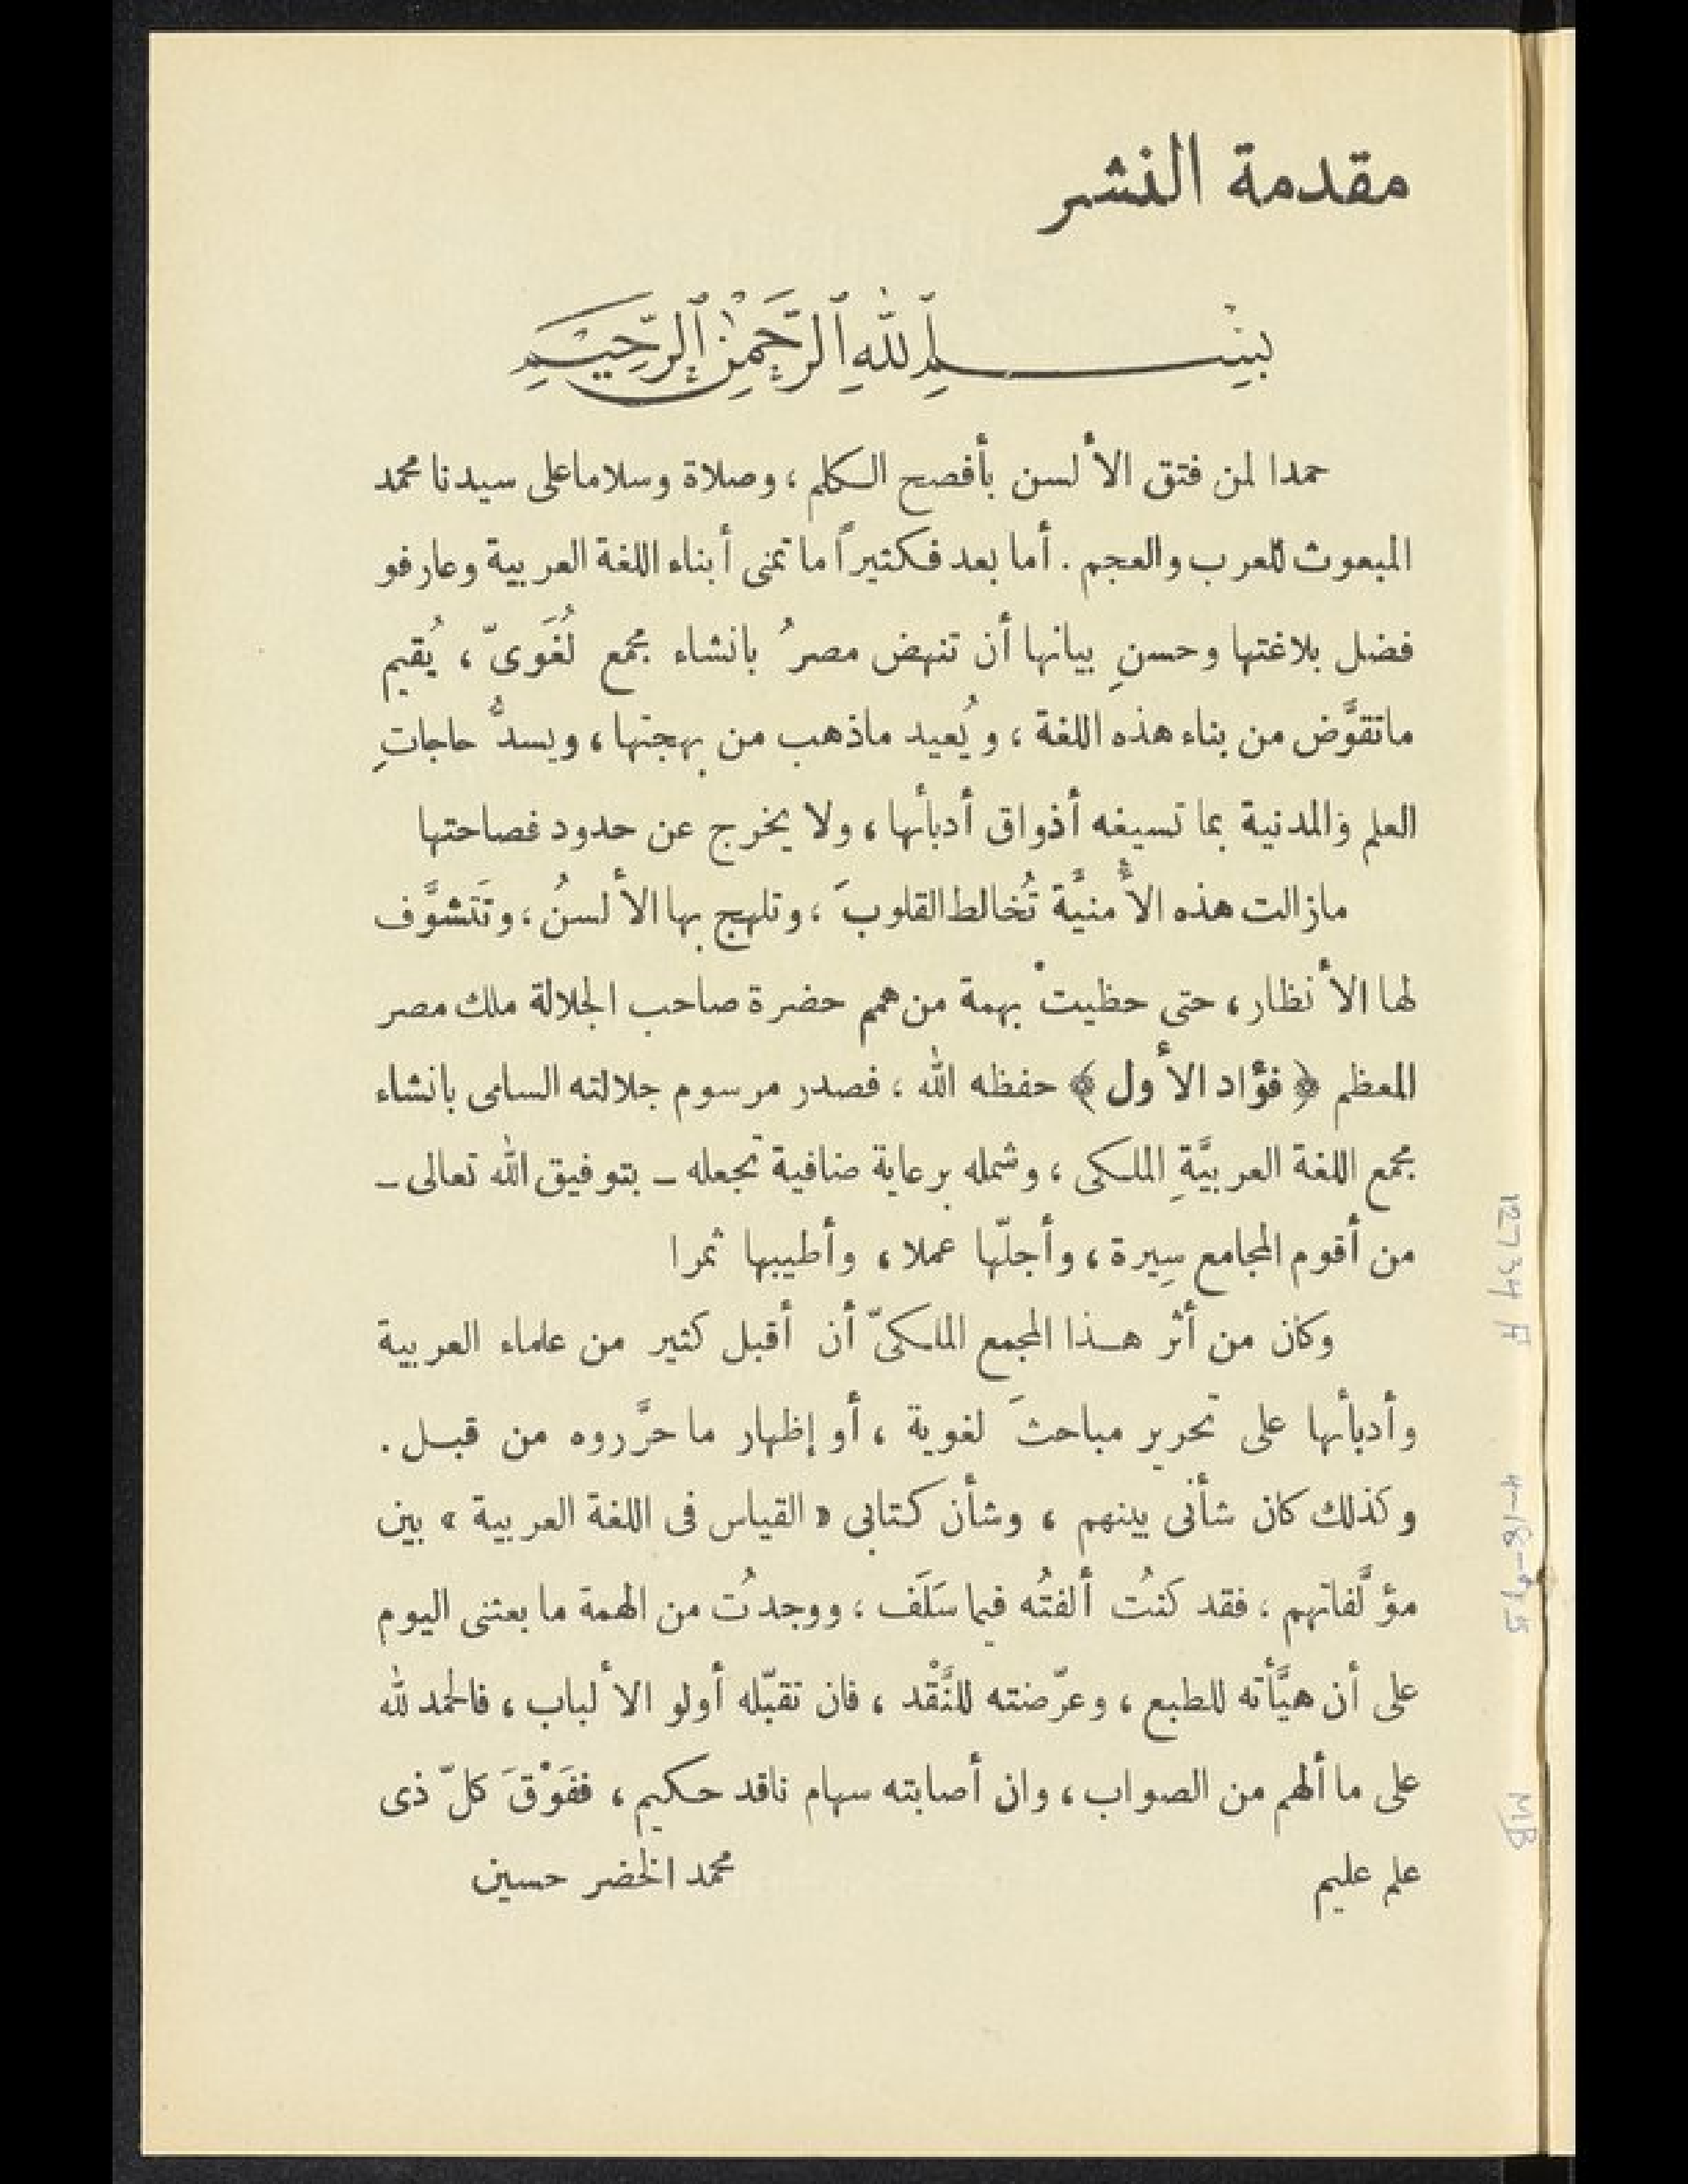 مقدمة النشر
بِسْمِ ٱللَّهِ ٱلرَّحْمَٰنِ ٱلرَّحِيمِ
حمدا لمن فتق الألسن بأفصح الكلم، وصلاة وسلاما على سيدنا محمد
المبعوث للعرب والعجم. أما بعد فكثيراً ما تمنى أبناء اللغة العربية وعارفو
فضل بلاغتها وحسنِ بيانها أن تنهض مصرُ بانشاء مجمع لُغَوىّ، يُقيم
ماتقوَّض من بناء هذه اللغة، ويُعيد ماذهب من بهجتها، ويسدُّ حاجاتِ
العلم والمدنية بما تسيغه أذواق أدبأئها، ولا يخرج عن حدود فصاحتها
مازالت هذه الأُمنيَّة تُخالط القلوبَ، وتلهج بها الألسنُ، وتَتشوَّف
لها الأنظار، حتى حظيتْ بهمة من همم حضرة صاحب الجلالة ملك مصر
المعظم ﴿فؤاد الأول﴾ حفظه الله، فصدر مرسوم جلالته السامى بانشاء
مجمع اللغة العربيَّةِ الملكى، وشمله برعاية ضافية تجعله ـ بتوفيق الله تعالى ـ
من أقوم المجامع سِيرة، وأجلّها عملا، وأطيبها ثمرا
وكان من أثر هـذا المجمع الملكىّ أن أقبل كثير من علماء العربية
وأدبأئها على تحرير مباحثَ لغوية، أو إظهار ما حرَّروه من قبـل.
وكذلك كان شأنى بينهم، وشأن كتابى «القياس فى اللغة العربية» بين
مؤلَّفاتهم، فقد كنتُ ألفتُه فيما سَلَف، ووجدتُ من الهمة ما بعثنى اليوم
على أن هيَّأته للطبع، وعرّضته للنَّقْد، فان تقبّله أولو الألباب، فالحمد لله
على ما ألهم من الصواب، وان أصابته سهام ناقد حكيم، ففَوْقَ كلّ ذى
علم عليم
محمد الخضر حسين
12734 H
4-18-75
MB